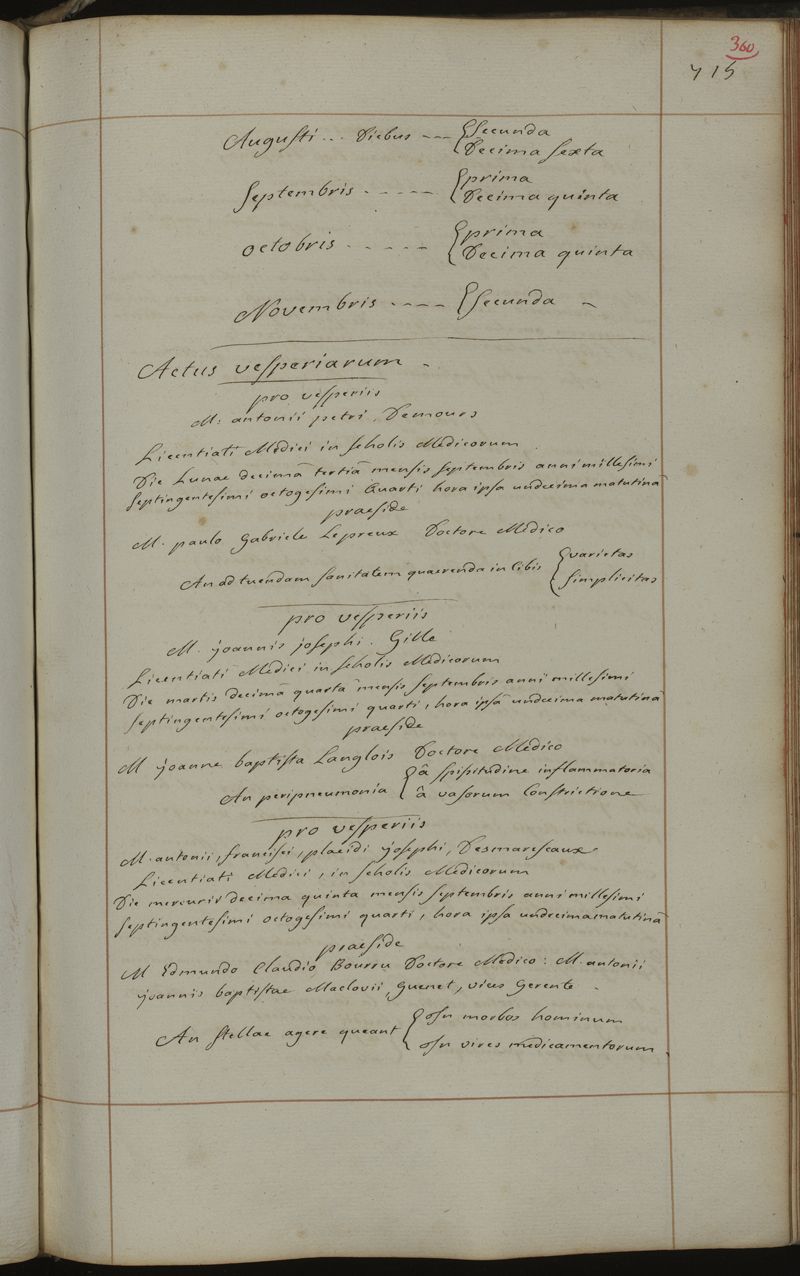 360
715
Augusti ... Diebus --- { Secunda
Decima Sexta
Septembris ----- { prima
Decima quinta
octobris ----- { prima
Decima quinta
Novembris ---- { Secunda -
Actus vesperiarum -
pro vesperiis
M: antonii petri, Demours
Licentiati Medici in Scholis Medicorum
Die Lunae decimâ tertiâ mensis Septembris anni millesimi
Septingentesimi octogesimi Quarti hora ipsa undecima matutinâ
praeside
M. paulo Gabriele Lepreux Doctore Medico
An ad tuendam Sanitatem quaerenda in Cibis { varietas
Simplicitas
pro vesperiis
M. joannis josephi. Gille
Licentiati Medici in Scholis Medicorum
Die martis decimâ quarta mensis Septembris anni millesimi
Septingentesimi octogesimi quarti, hora ipsâ undecima matutinâ
praeside
M joanne baptista Langlois Doctore Medico
An peripneumonia { â Spissitudine inflammatoria
â vasorum Constrictione
pro vesperiis
M. antonii, francisci, placidi josephi, Desmarescaux
Licentiati Medici, in Scholis Medicorum
Die mercurii decima quinta mensis Septembris anni millesimi
Septingentesimi octogesimi quarti, hora ipsa undecima matutinâ
praeside
M Edmundo Claudio Bourru Doctore Medico: M. antonii
joannis baptistae Maclovii, Guenet, vices Gerente -
An Stellae agere queant { in morbos hominum
in vires medicamentorum